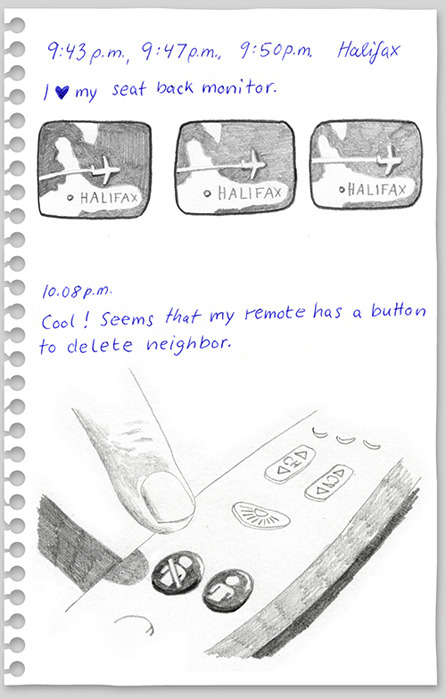 9:43 p.m., 9:47 p.m., 9:50 p.m. Halifax
I ♥ my seat back monitor.
HALIFAX HALIFAX HALIFAX
10.08 p.m.
Cool! Seems that my remote has a button
to delete neighbor.